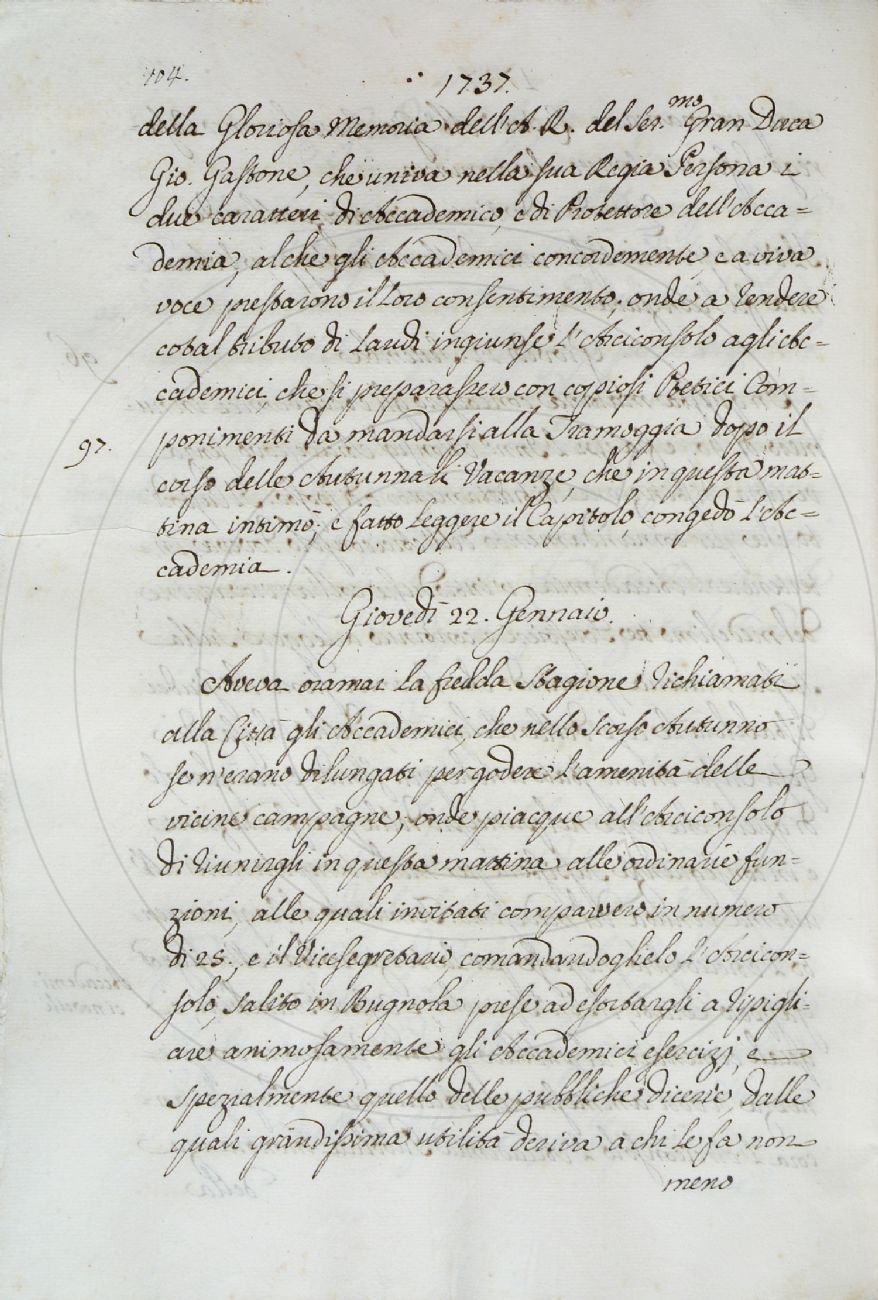 104.
1737.
della Gloriosa Memoria dell'A. R. del Ser.mo Gran Duca
Gio. Gastone, che univa nella sua Regia Persona i
due caratteri di Accademico, e di Protettore dell'Acca=
demia, al che gli Accademici concordemente, e a viva
voce prestarono il loro consentimento, onde a rendere
cotal tributo di Laudi ingiunse l'Arciconsolo agli Ac=
cademici, che si preparassero con copiosi Poetici Com=
ponimenti da mandarsi alla Tramoggia dopo il
97.
corso delle Autunnali Vacanze, che in questa mat=
tina intimò; e fatto leggere il Capitolo, congedò l'Ac=
cademia.
Giovedì 22. Gennaio.
Aveva oramai la fredda Stagione richiamati
alla Città gli Accademici, che nello scorso Autunno
se n'erano dilungati per godere l'amenità delle
vicine campagne, onde piacque all'Arciconsolo
di riunirgli in questa mattina alle ordinarie fun=
zioni, alle quali invitati comparvero in numero
di 25., e il Vicesegretario, comandandoglielo l'Arcicon=
solo, salito in Bugnola prese ad esortargli a ripigli=
are animosamente gli Accademici esercizj, e
spezialmente quello delle pubbliche dicerie, dalle
quali grandissima utilità deriva a chi le fa non
meno